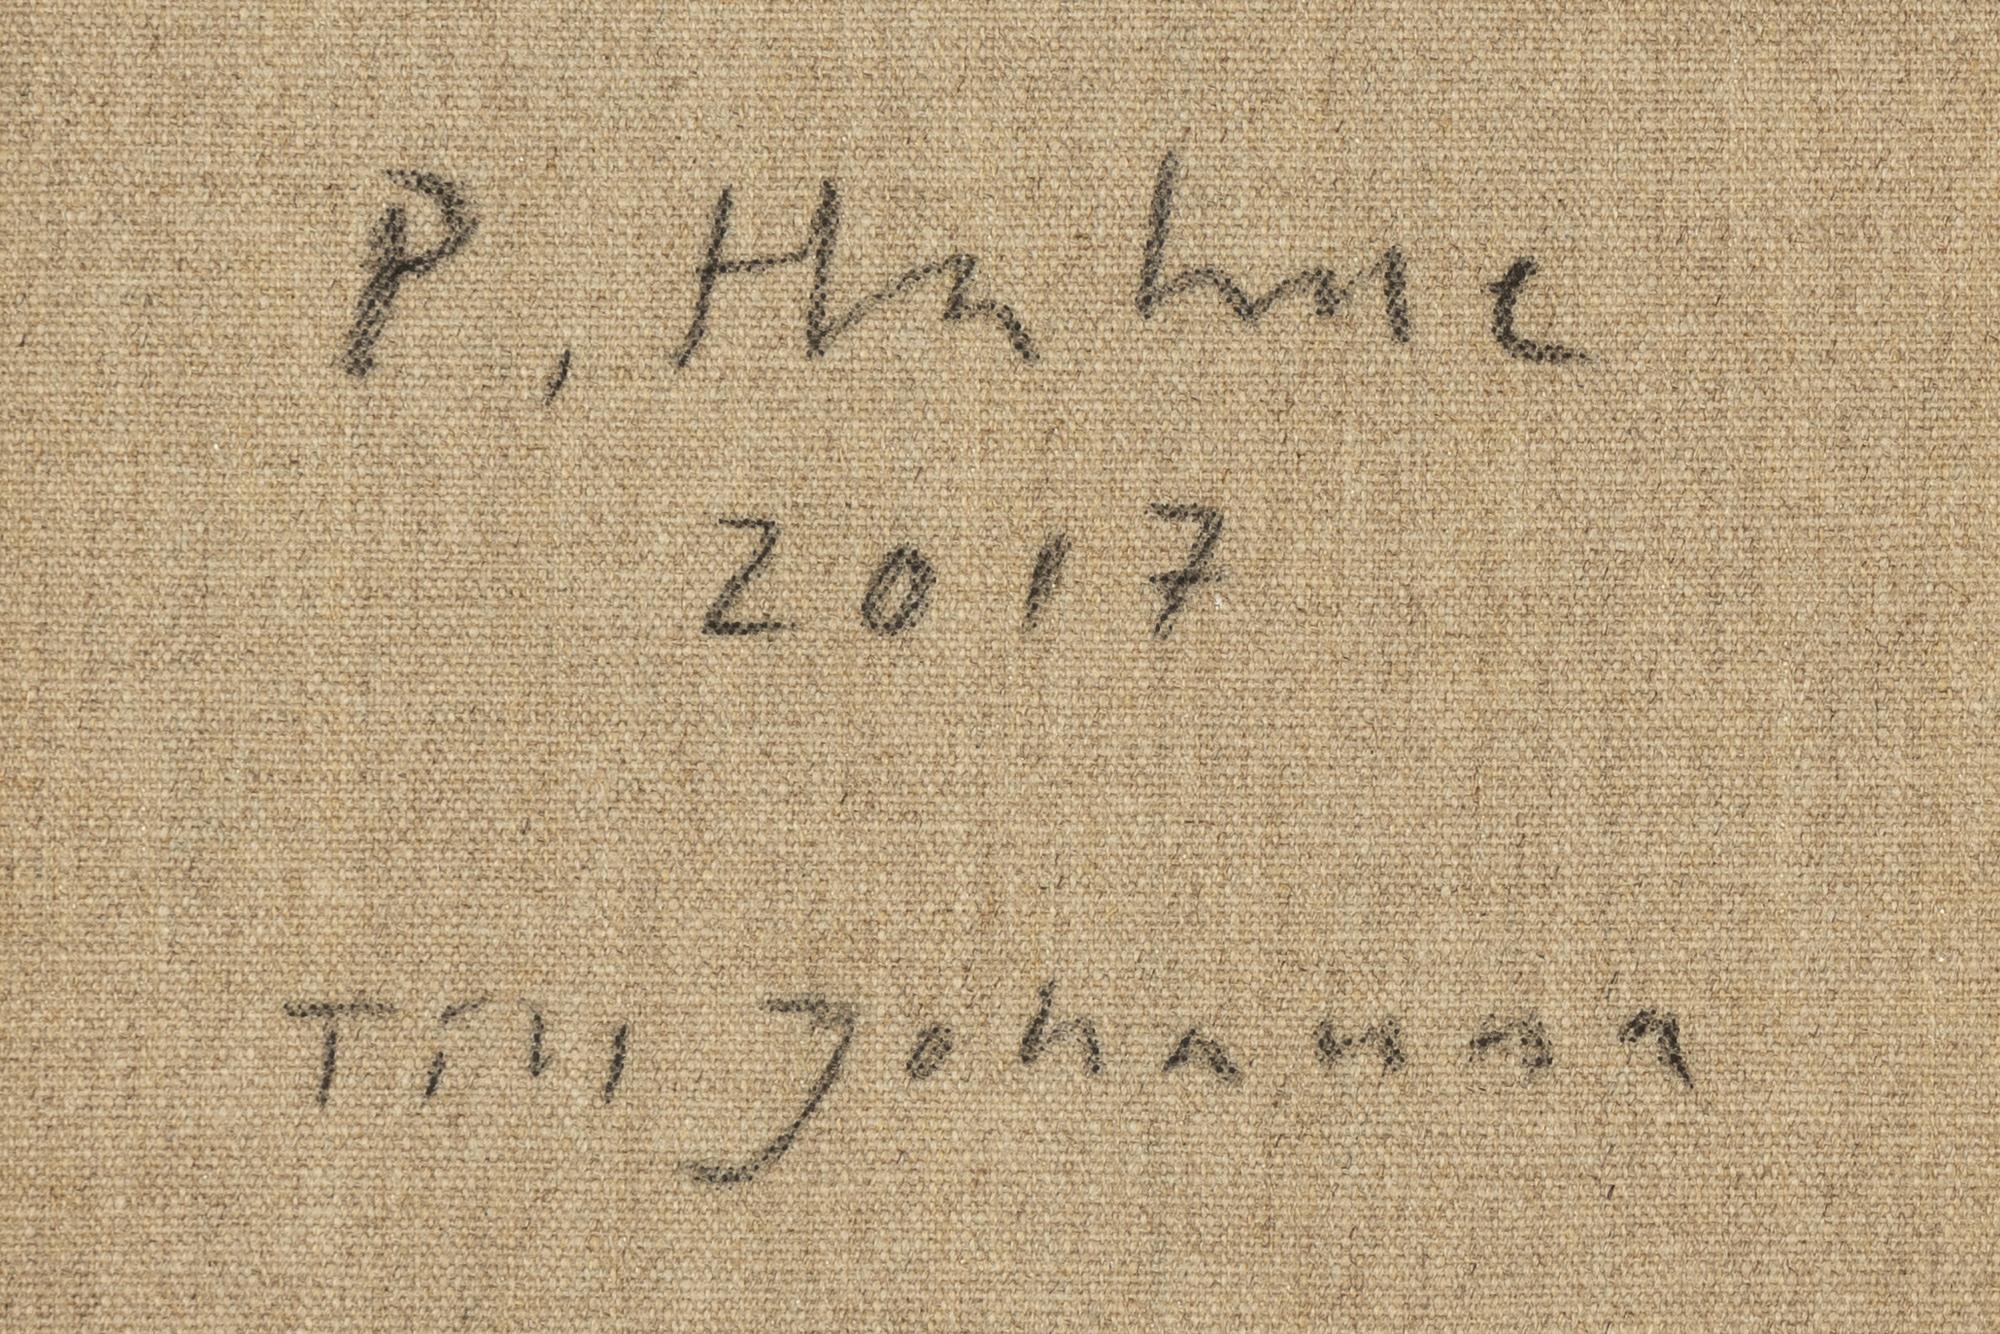 P. Hahne
2017
Till Johanna